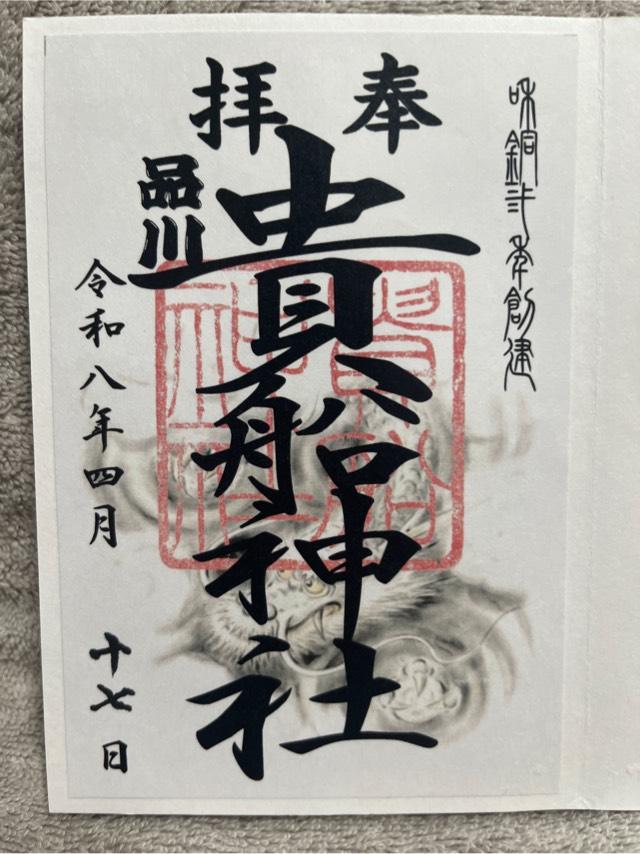 和銅弐年創建
奉拝
品川
貴船神社
令和八年四月十七日